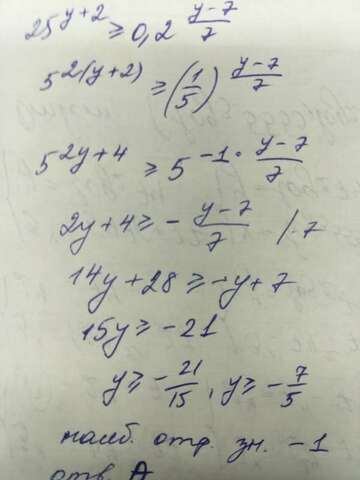 25^(y+2) ≥ 0,2^((y-7)/7)
5^(2(y+2)) ≥ (1/5)^((y-7)/7)
5^(2y+4) ≥ 5^(-1·(y-7)/7)
2y+4 ≥ -(y-7)/7 /·7
14y+28 ≥ -y+7
15y ≥ -21
y ≥ -21/15, y ≥ -7/5
наиб. отр. зн. -1
отв. А